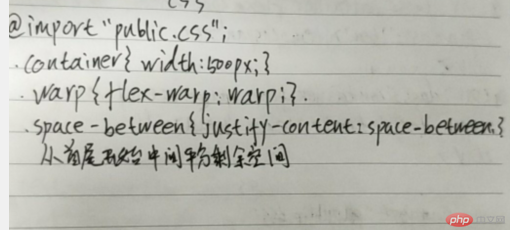 css
@import "public.css";
.container{width:500px;}
.warp{flex-warp:warp;}.
.space-between{justify-content:space-between;}
从首尾开始中间平分剩余空间
php